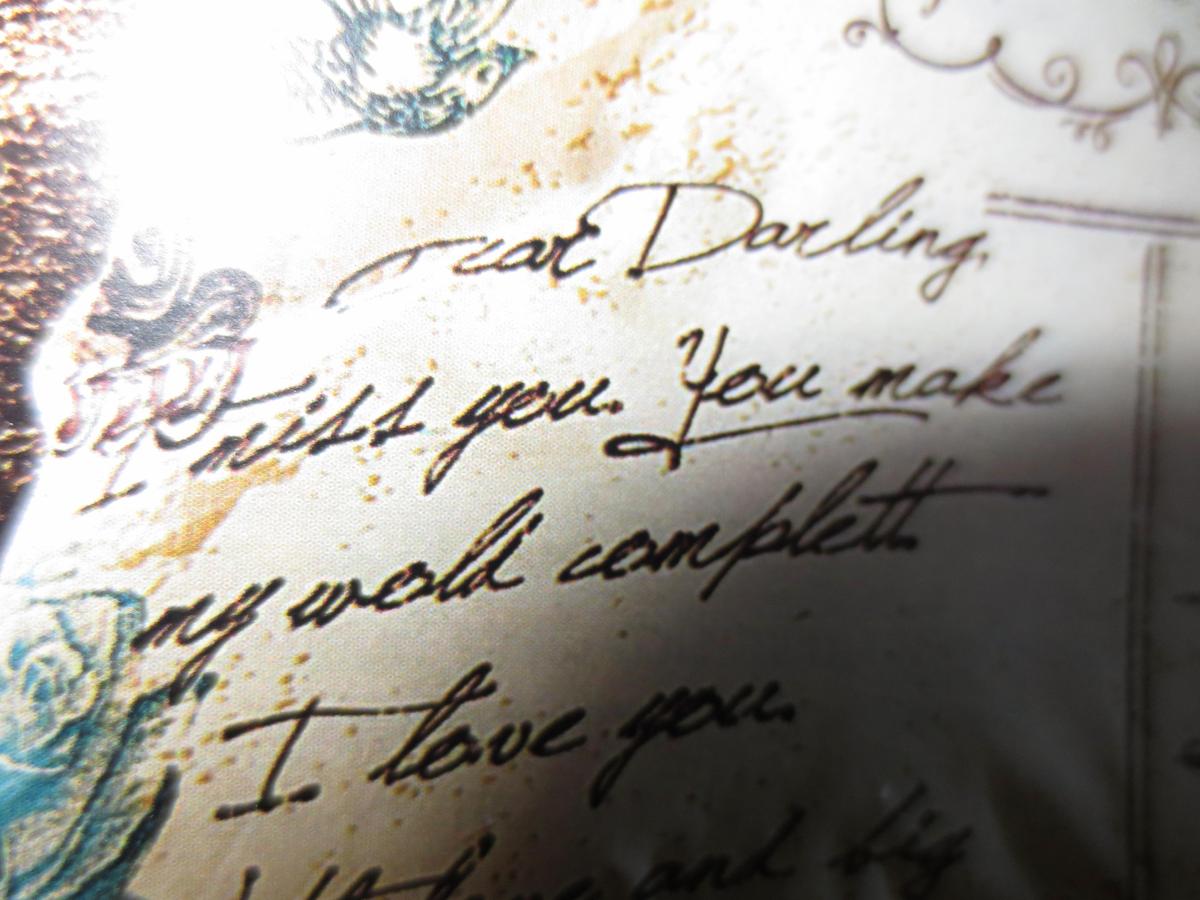 Dear Darling,
I miss you. You make
my world complete
I love you.
love and big